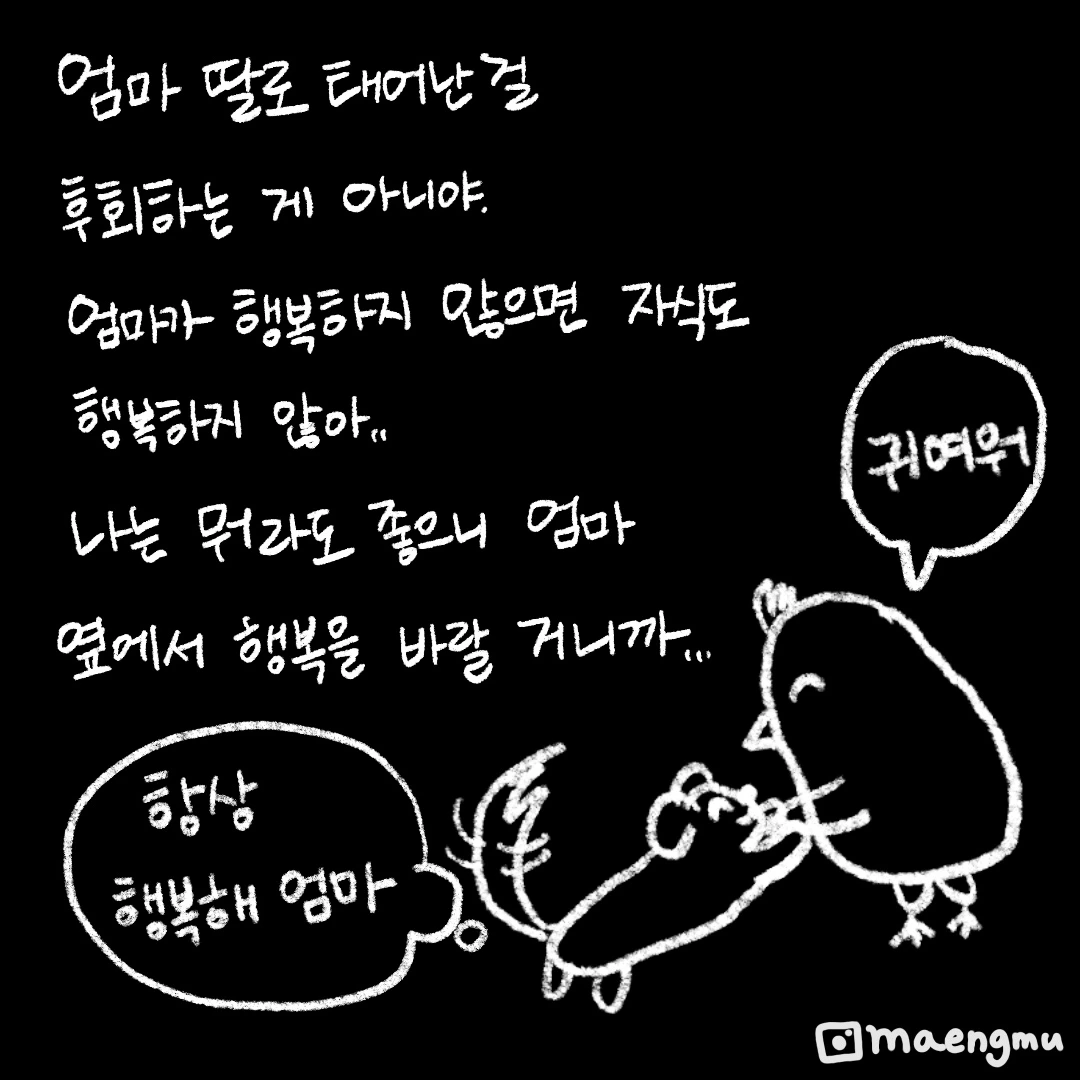 엄마 딸로 태어난 걸
후회하는 게 아니야.
엄마가 행복하지 않으면 자식도
행복하지 않아..
나는 뭐라도 좋으니 엄마
옆에서 행복을 바랄 거니까...
귀여워
항상
행복해 엄마
maengmu